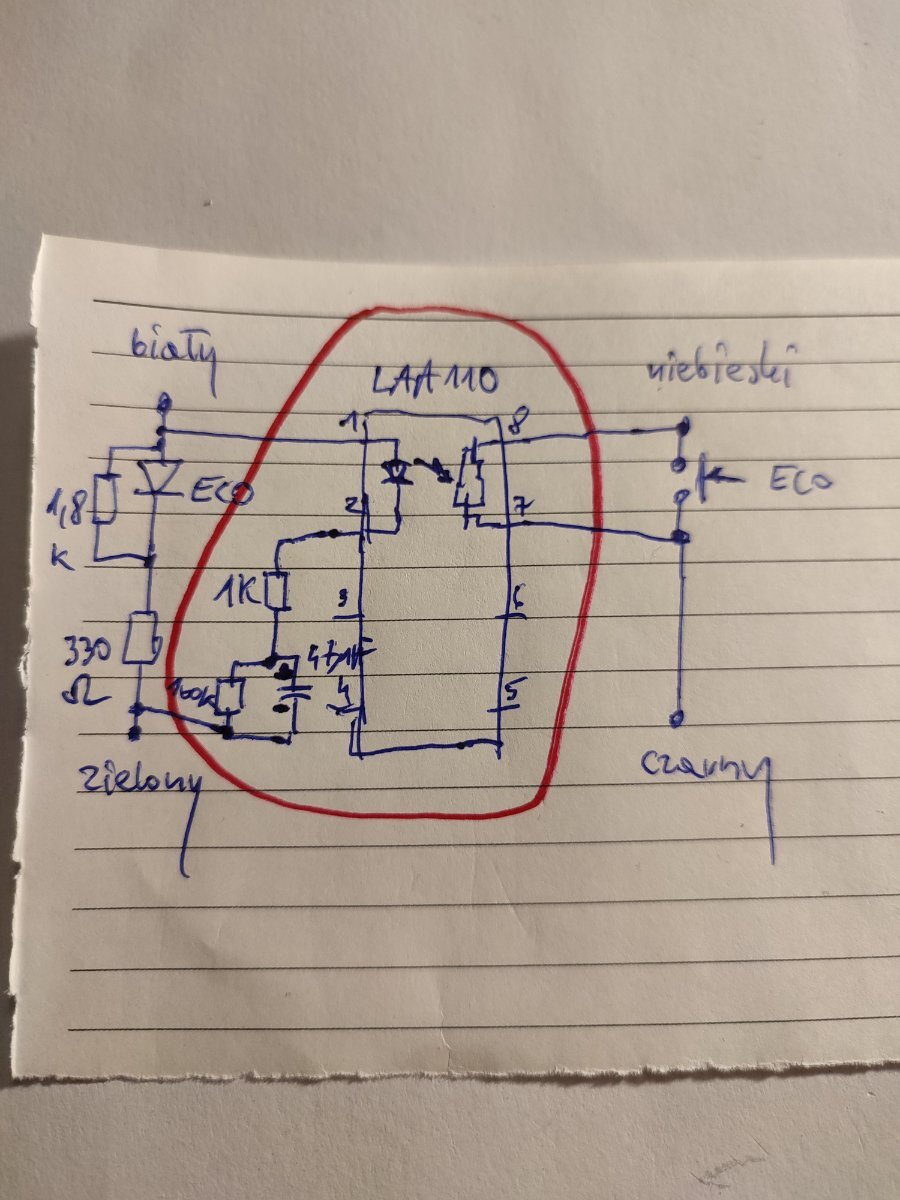 biały
LAA110
niebieski
1
8
ECO
ECO
1,8
K
2
7
1K
3
6
330
Ω
100K
4
5
zielony
czarny